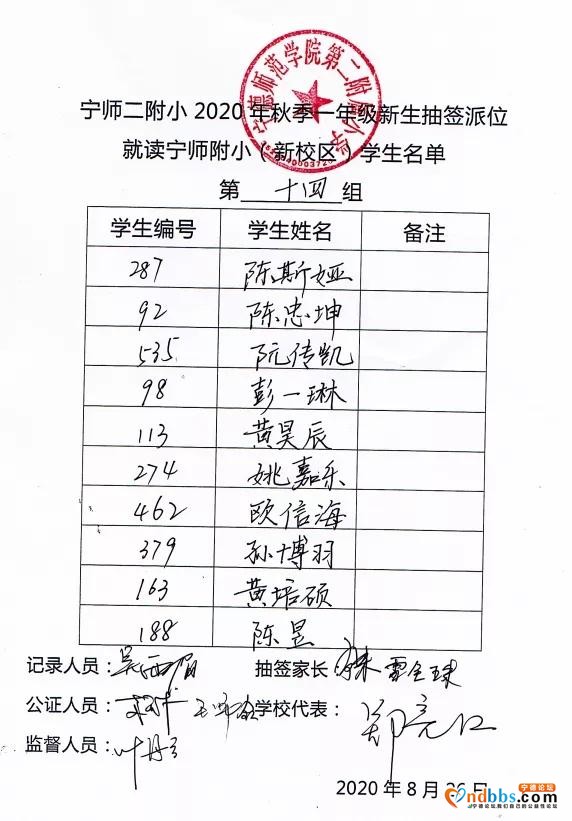 宁德师范学院第二附属小学
宁师二附小 2020 年秋季一年级新生抽签派位
就读宁师附小（新校区）学生名单
第 十四 组
学生编号 学生姓名 备注
287 陈斯娅
92 陈忠坤
535 阮传凯
98 彭一琳
113 黄昊辰
274 姚嘉乐
462 欧信海
379 孙博羽
163 黄培硕
188 陈昱
记录人员： 抽签家长
公证人员： 学校代表：
监督人员：
2020 年 8 月 26 日
ndbbs.com
宁德论坛